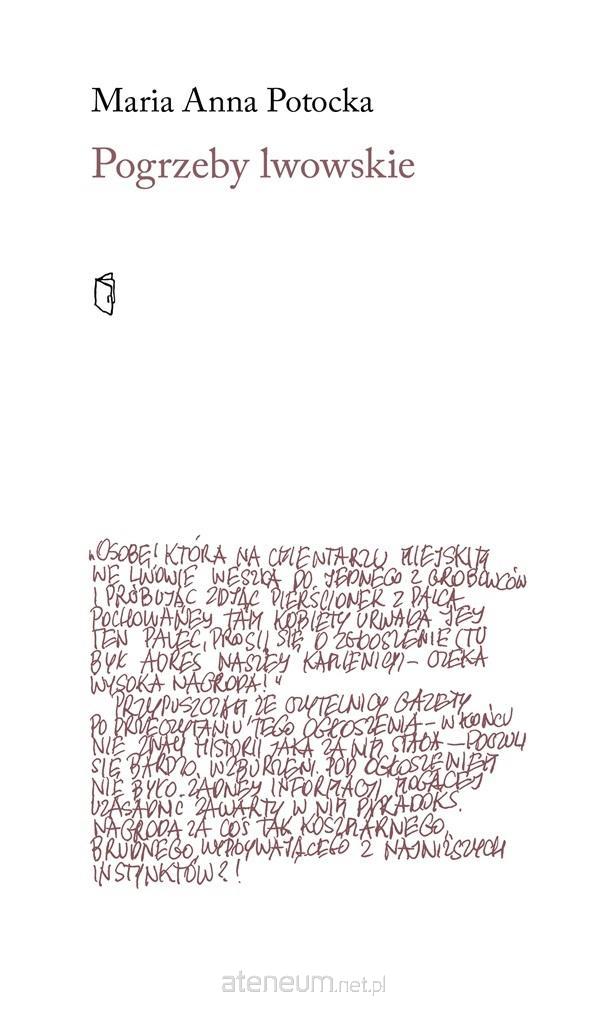 Maria Anna Potocka
Pogrzeby lwowskie
„OSOBĘ, KTÓRA NA CMENTARZU MIEJSKIM
WE LWOWIE WESZŁA DO JEDNEGO Z GROBOWCÓW
I PRÓBUJĄC ZDJĄĆ PIERŚCIONEK Z PALCA
POCHOWANEY TAM KOBIETY URWAŁA JEY
TEN PALEC, PROSI SIĘ O ZGŁOSZENIE (TU
BYŁ ADRES NASZEY KAMIENICY) – CZEKA
WYSOKA NAGRODA!"
PRZYPUSZCZAM, ŻE CZYTELNICY GAZETY
PO PRZECZYTANIU TEGO OGŁOSZENIA – W KOŃCU
NIE ZNALI HISTORII JAKA ZA NIM STAŁA – POCZULI
SIĘ BARDZO WZBURZENI. POD OGŁOSZENIEM
NIE BYŁO ŻADNEJ INFORMACJI MOGĄCEJ
UZASADNIĆ ZAWARTY W NIM PARADOKS.
NAGRODA ZA COŚ TAK KOSZMARNEGO,
BRUDNEGO, WYPŁYWAJĄCEGO Z NAJNIŻSZYCH
INSTYNKTÓW?!
ateneum.net.pl